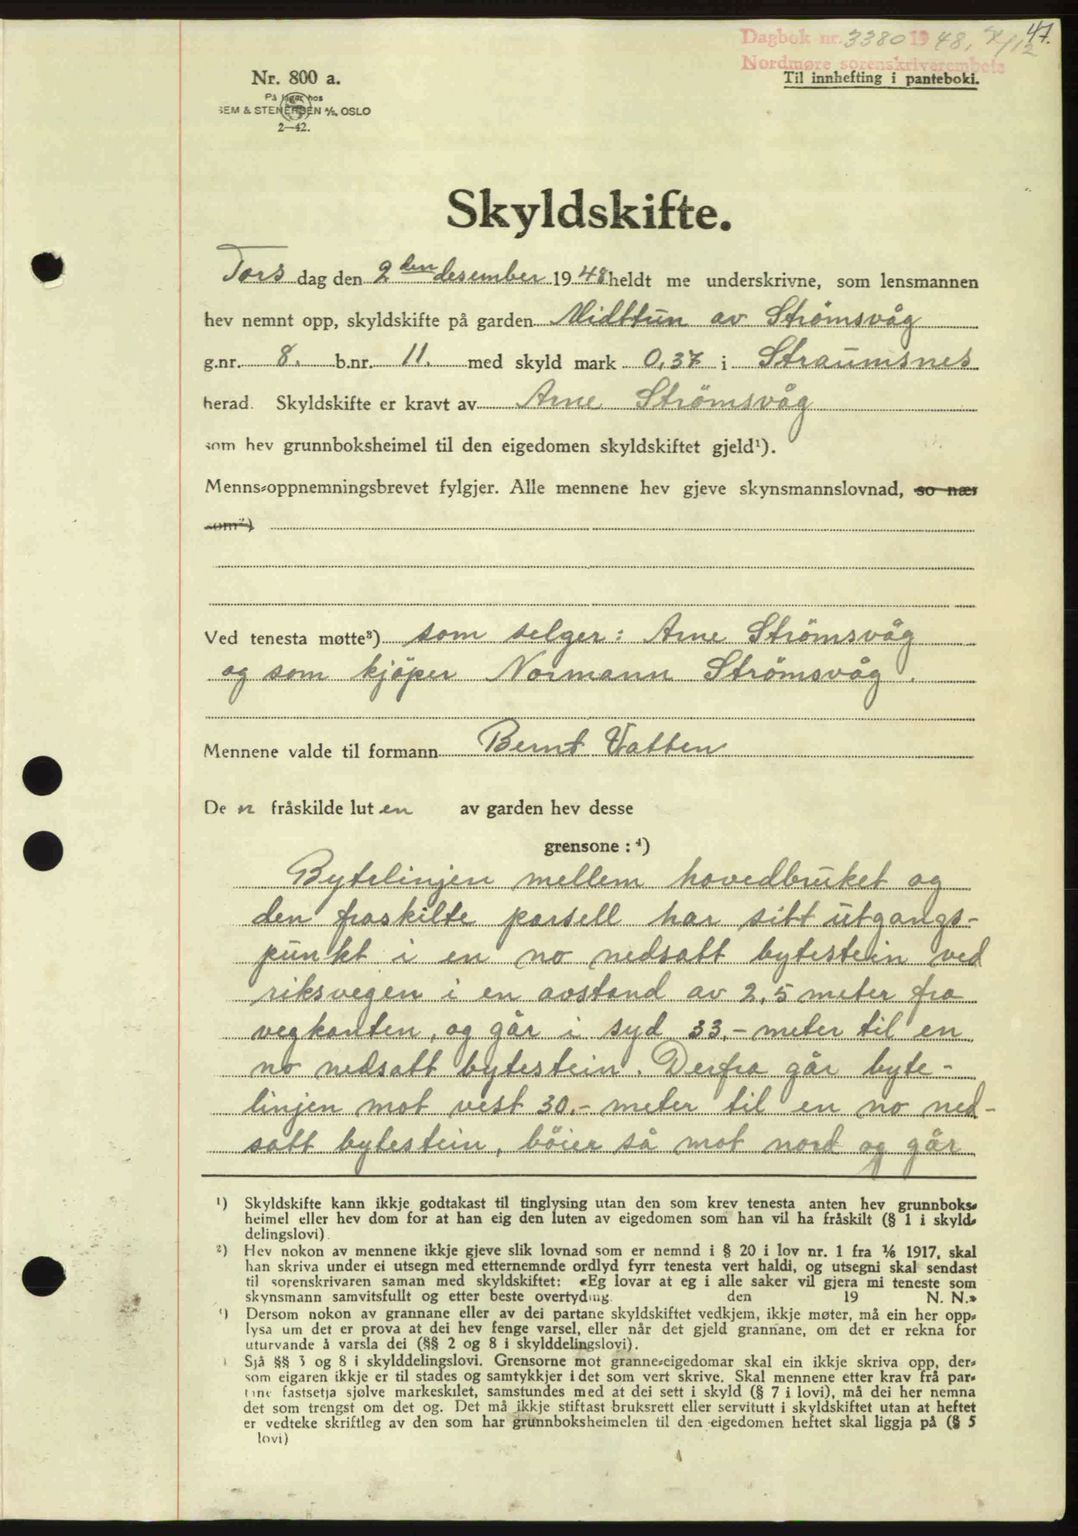 47.
Dagbok nr. 3380 1948, 7/12
Nordmøre sorenskriverembete
Nr. 800 a.
Til innhefting i panteboki.
På lager hos
SEM & STENERSEN A/S, OSLO
2—42.
Skyldskifte.
Tors dag den 2 den desember 1948 heldt me underskrivne, som lensmannen
hev nemnt opp, skyldskifte på garden Midttun av Strömsvåg
g.nr. 8. b.nr. 11. med skyld mark 0,37 i Straumsnes
herad. Skyldskifte er kravt av Arne Strömsvåg
som hev grunnboksheimel til den eigedomen skyldskiftet gjeld¹).
Menns-oppnemningsbrevet fylgjer. Alle mennene hev gjeve skynsmannslovnad, so nær
som²)
Ved tenesta møtte³) som selger: Arne Strömsvåg
og som kjöper Normann Strömsvåg.
Mennene valde til formann Bernt Vatten
De n fråskilde lut en av garden hev desse
grensone : ⁴)
Bytelinjen mellem hovedbruket og
den fraskilte parsell har sitt utgangs-
punkt i en no nedsatt bytestein ved
riksvegen i en avstand av 2,5 meter fra
vegkanten, og går i syd 33,- meter til en
no nedsatt bytestein. Derfra går byte-
linjen mot vest 30.- meter til en no ned-
satt bytestein, böier så mot nord og går
¹) Skyldskifte kann ikkje godtakast til tinglysing utan den som krev tenesta anten hev grunnboks-
heimel eller hev dom for at han eig den luten av eigedomen som han vil ha fråskilt (§ 1 i skyld-
delingslovi).
²) Hev nokon av mennene ikkje gjeve slik lovnad som er nemnd i § 20 i lov nr. 1 fra 1/6 1917, skal
han skriva under ei utsegn med etternemnde ordlyd fyrr tenesta vert haldi, og utsegni skal sendast
til sorenskrivaren saman med skyldskiftet: «Eg lovar at eg i alle saker vil gjera mi teneste som
skynsmann samvitsfullt og etter beste overtyding. den 19 N. N.»
³) Dersom nokon av grannane eller av dei partane skyldskiftet vedkjem, ikkje møter, må ein her opp-
lysa um det er prova at dei hev fenge varsel, eller når det gjeld grannane, om det er rekna for
uturvande å varsla dei (§§ 2 og 8 i skylddelingslovi).
Sjå §§ 3 og 8 i skylddelingslovi. Grensorne mot granne-eigedomar skal ein ikkje skriva opp, der-
som eigaren ikkje er til stades og samtykkjer i det som vert skrive. Skal mennene etter krav frå par-
tane fastsetja sjølve markeskilet, samstundes med at dei sett i skyld (§ 7 i lovi), må dei her nemna
det som trengst om det og. Det må ikkje stiftast bruksrett eller servitutt i skyldskiftet utan at heftet
er vedteke skriftleg av den som har grunnboksheimelen til den eigedomen heftet skal liggja på (§ 5
i lovi)